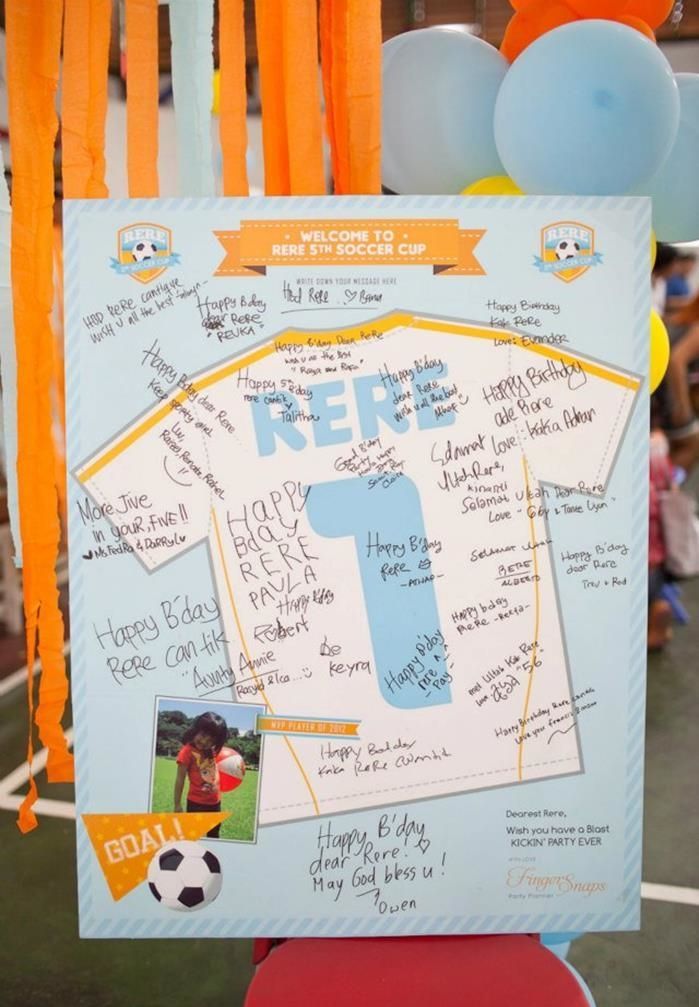 WELCOME TO
RERE 5TH SOCCER CUP
RERE
5TH SOCCER CUP
RERE
5TH SOCCER CUP
WRITE DOWN YOUR MESSAGE HERE
HBD RERE cantique
wish u all the best
Happy B'day
dear RERE
"REUKA"
Hbd Rere
Happy Birthday
Kak Rere
Love: Evander
Happy B'day Dear Rere
wish u all the best
Happy B'day dear Rere
Keep sporty
Luv,
Happy 5th B'day
rere cantik
Talitha
Happy B'day
dear Rere
wish u all the best
Happy Birthday
ade Rere
Love:
RERE
1
Selamat
Ultah Rere,
Selamat Ultah Dear Rere
Love - "Gby & Tante Uyan"
More Jive
in your FIVE!!
Ms. Fedra & Darryl
HAPPY
BDAY
RERE
PAULA
Happy B'day
RERE
Selamat Ultah
RERE
ALBERTO
Happy B'day
dear Rere
Trev & Rod
Happy B'day
Robert
Happy B'day
RERE cantik
"Aunty Annie
Keyra
Happy B'day
rere
Happy bday
RERE
met Ultah Kak Rere
Happy Birthday Rere
love you
MVP PLAYER OF 2012
Happy Bday
Kaka RERE
GOAL!
Happy B'day
dear Rere!
May God bless u!
Owen
Dearest Rere,
Wish you have a Blast
KICKIN' PARTY EVER
WITH LOVE
FingerSnaps
Party Planner